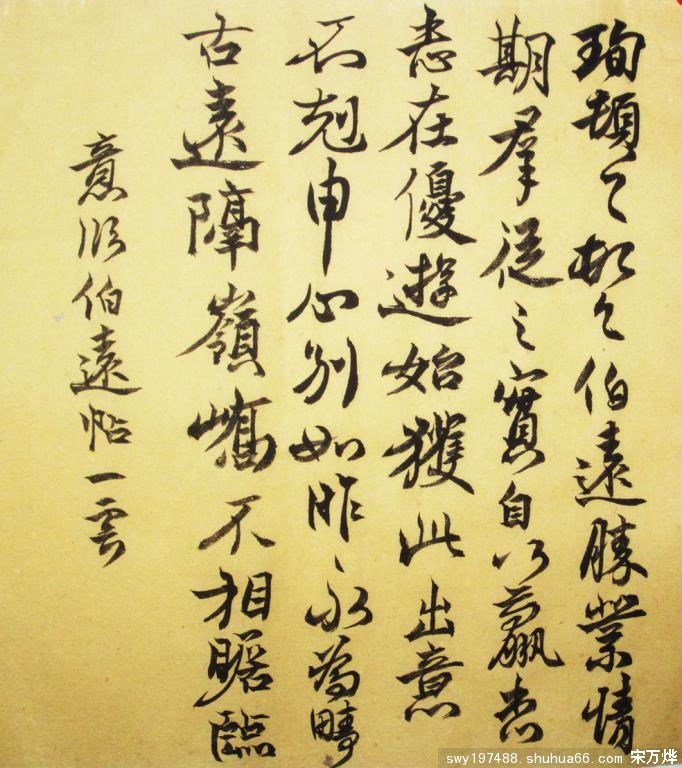 珣頓首頓首伯遠勝業情
期羣從之寶自以羸患
志在優遊始獲此出意
不剋申分別如昨永為疇
古遠隔嶺嶠不相瞻臨
意臨伯遠帖一雲
swy197488. shuhua66. com 宋万烨